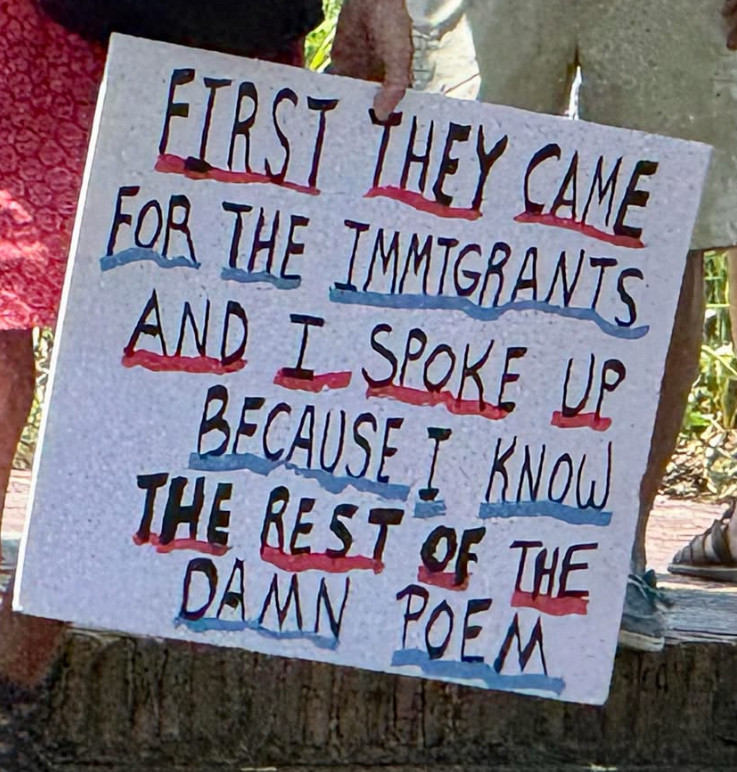 FIRST THEY CAME
FOR THE IMMIGRANTS
AND I SPOKE UP
BECAUSE I KNOW
THE REST OF THE
DAMN POEM